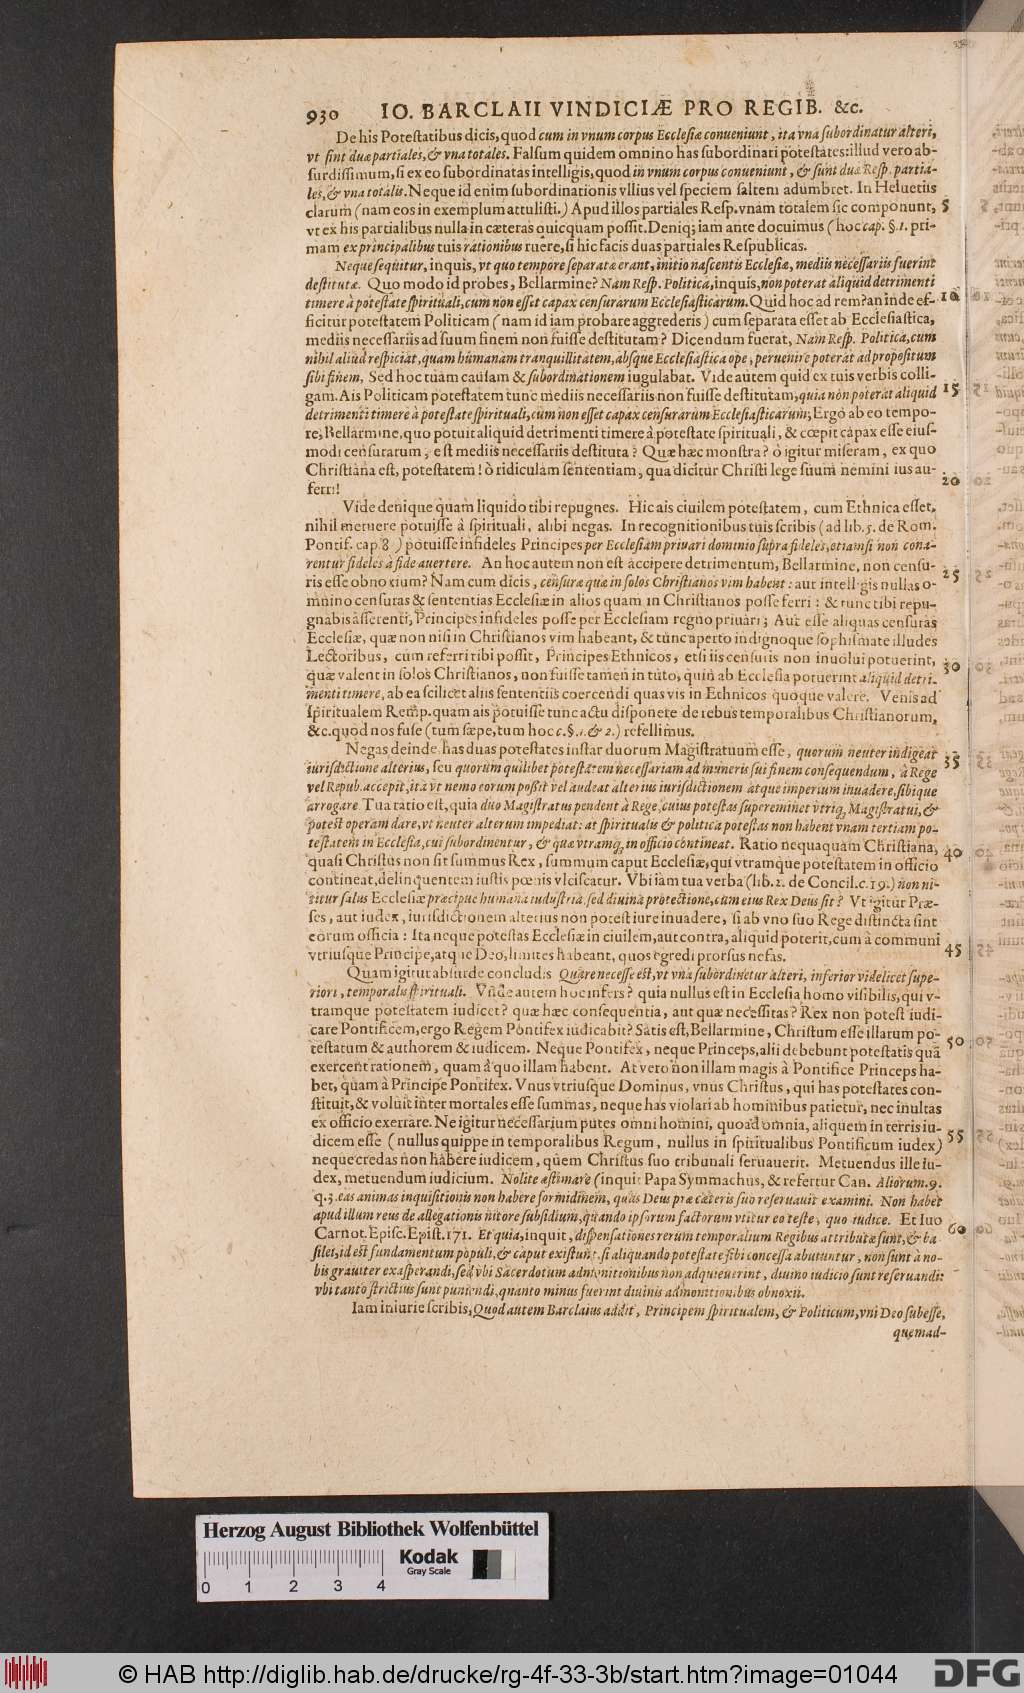 930 IO. BARCLAII VINDICIÆ PRO REGIB. &c.
De his Poteſtatibus dicis, quod cum in vnum corpus Eccleſiæ conueniunt, ita vna ſubordinatur alteri,
vt ſint duæ partiales, & vna totales. Falſum quidem omnino has ſubordinari poteſtates: illud vero ab-
ſurdiſſimum, ſi ex eo ſubordinatas intelligis, quod in vnum corpus conueniunt, & ſunt duæ Reſp. partia-
les, & vna totalis. Neque id enim ſubordinationis vllius vel ſpeciem ſaltem adumbret. In Heluetiis
clarum (nam eos in exemplum attuliſti.) Apud illos partiales Reſp. vnam totalem ſic componunt, 5
vt ex his partialibus nulla in cæteras quicquam poſſit. Deniq; iam ante docuimus (hoc cap. §. 1. pri-
mam ex principalibus tuis rationibus ruere, ſi hic facis duas partiales Reſpublicas.
Neque ſequitur, inquis, vt quo tempore ſeparatæ erant, initio naſcentis Eccleſiæ, mediis neceſſariis fuerint
deſtitutæ. Quo modo id probes, Bellarmine? Nam Reſp. Politica, inquis, non poterat aliquid detrimenti
timere à poteſtate ſpirituali, cum non eſſet capax cenſurarum Eccleſiaſticarum. Quid hoc ad rem? an inde ef- 10
ficitur poteſtatem Politicam (nam id iam probare aggrederis) cum ſeparata eſſet ab Eccleſiaſtica,
mediis neceſſariis ad ſuum finem non fuiſſe deſtitutam? Dicendum fuerat, Nam Reſp. Politica, cum
nihil aliud reſpiciat, quam humanam tranquillitatem, abſque Eccleſiaſtica ope, peruenire poterat ad propoſitum
ſibi finem, Sed hoc tuam cauſam & ſubordinationem iugulabat. Vide autem quid ex tuis verbis colli-
gam. Ais Politicam poteſtatem tunc mediis neceſſariis non fuiſſe deſtitutam, quia non poterat aliquid 15
detrimenti timere à poteſtate ſpirituali, cum non eſſet capax cenſurarum Eccleſiaſticarum; Ergo ab eo tempo-
re, Bellarmine, quo potuit aliquid detrimenti timere à poteſtate ſpirituali, & cœpit capax eſſe eiuſ-
modi cenſurarum, eſt mediis neceſſariis deſtituta? Quæ hæc monſtra? ò igitur miſeram, ex quo
Chriſtiana eſt, poteſtatem! ò ridiculam ſententiam, qua dicitur Chriſti lege ſuum nemini ius au-
ferri! 20
Vide denique quàm liquido tibi repugnes. Hic ais ciuilem poteſtatem, cum Ethnica eſſet,
nihil metuere potuiſſe à ſpirituali, alibi negas. In recognitionibus tuis ſcribis (ad lib. 5. de Rom.
Pontif. cap. 8.) potuiſſe infideles Principes per Eccleſiam priuari dominio ſupra fideles, etiamſi non cona-
rentur fideles à fide auertere. An hoc autem non eſt accipere detrimentum, Bellarmine, non cenſu-
ris eſſe obnoxium? Nam cum dicis, cenſuræ quæ in ſolos Chriſtianos vim habent: aut intelligis nullas o- 25
mnino cenſuras & ſententias Eccleſiæ in alios quam in Chriſtianos poſſe ferri: & tunc tibi repu-
gnabis aſſerenti, Principes infideles poſſe per Eccleſiam regno priuari; Aut eſſe aliquas cenſuras
Eccleſiæ, quæ non niſi in Chriſtianos vim habeant, & tunc aperto indignoque ſophiſmate illudes
Lectoribus, cùm referri tibi poſſit, Principes Ethnicos, etſi iis cenſuris non inuolui potuerint,
quæ valent in ſolos Chriſtianos, non fuiſſe tamen in tuto, quin ab Eccleſia potuerint aliquid detri- 30
menti timere, ab ea ſcilicet aliis ſententiis coercendi quas vis in Ethnicos quoque valere. Venis ad
ſpiritualem Remp. quam ais potuiſſe tunc actu diſponere de rebus temporalibus Chriſtianorum,
&c. quod nos fuſe (tum ſæpe, tum hoc c. §. 1. & 2.) refellimus.
Negas deinde has duas poteſtates inſtar duorum Magiſtratuum eſſe, quorum neuter indigeat
iurisdictione alterius, ſeu quorum quilibet poteſtatem neceſſariam ad muneris ſui finem conſequendum, à Rege 35
vel Repub. accepit, ita vt nemo eorum poßit vel audeat alterius iurisdictionem atque imperium inuadere, ſibique
arrogare. Tua ratio eſt, quia duo Magiſtratus pendent à Rege, cuius poteſtas ſupereminet vtriq; Magiſtratui, &
poteſt operam dare, vt neuter alterum impediat: at ſpiritualis & politica poteſtas non habent vnam tertiam po-
teſtatem in Eccleſia, cui ſubordinentur, & quæ vtramq; in officio contineat. Ratio nequaquam Chriſtiana,
quaſi Chriſtus non ſit ſummus Rex, ſummum caput Eccleſiæ, qui vtramque poteſtatem in officio 40
contineat, delinquentem iuſtis pœnis vlciſcatur. Vbi iam tua verba (lib. 2. de Concil. c. 19.) non ni-
titur ſalus Eccleſiæ præcipue humana induſtria, ſed diuina protectione, cùm eius Rex Deus ſit? Vt igitur Præ-
ſes, aut iudex, iurisdictionem alterius non poteſt iure inuadere, ſi ab vno ſuo Rege diſtincta ſint
eorum officia: Ita neque poteſtas Eccleſiæ in ciuilem, aut contra, aliquid poterit, cum à communi
vtriuſque Principe, atque Deo, limites habeant, quos egredi prorſus nefas. 45
Quam igitur abſurde concludis Quare neceſſe eſt, vt vna ſubordinetur alteri, inferior videlicet ſupe-
riori, temporalis ſpirituali. Vnde autem hoc infers? quia nullus eſt in Eccleſia homo viſibilis, qui v-
tramque poteſtatem iudicet? quæ hæc conſequentia, aut quæ neceſſitas? Rex non poteſt iudi-
care Pontificem, ergo Regem Pontifex iudicabit? Satis eſt, Bellarmine, Chriſtum eſſe illarum po-
teſtatum & authorem & iudicem. Neque Pontifex, neque Princeps, alii debebunt poteſtatis quã 50
exercent rationem, quam à quo illam habent. At vero non illam magis à Pontifice Princeps ha-
bet, quàm à Principe Pontifex. Vnus vtriuſque Dominus, vnus Chriſtus, qui has poteſtates con-
ſtituit, & voluit inter mortales eſſe ſummas, neque has violari ab hominibus patietur, nec inultas
ex officio exerrare. Ne igitur neceſſarium putes omni homini, quoad omnia, aliquem in terris iu-
dicem eſſe (nullus quippe in temporalibus Regum, nullus in ſpiritualibus Pontificum iudex) 55
neque credas non habere iudicem, quem Chriſtus ſuo tribunali ſeruauerit. Metuendus ille iu-
dex, metuendum iudicium. Nolite æſtimare (inquit Papa Symmachus, & refertur Can. Aliorum. 9.
q. 3. eas animas inquiſitionis non habere formidinem, quas Deus præ cæteris ſuo reſeruauit examini. Non habet
apud illum reus de allegationis nitore ſubſidium, quando ipſorum factorum vtitur eo teſte, quo iudice. Et Iuo
Carnot. Epiſc. Epiſt. 171. Et quia, inquit, diſpenſationes rerum temporalium Regibus attributæ ſunt, & ba- 60
ſilei, id eſt fundamentum populi, & caput exiſtunt, ſi aliquando poteſtate ſibi conceſſa abutuntur, non ſunt à no-
bis grauiter exaſperandi, ſed vbi Sacerdotum admonitionibus non adquieuerint, diuino iudicio ſunt reſeruandi:
vbi tanto ſtrictius ſunt puniendi, quanto minus fuerint diuinis admonitionibus obnoxii.
Iam iniurie ſcribis, Quod autem Barclaius addit, Principem ſpiritualem, & Politicum, vni Deo ſubeſſe,
quemad-
Herzog August Bibliothek Wolfenbüttel
0 1 2 3 4 Kodak
Gray Scale
© HAB http://diglib.hab.de/drucke/rg-4f-33-3b/start.htm?image=01044
DFG